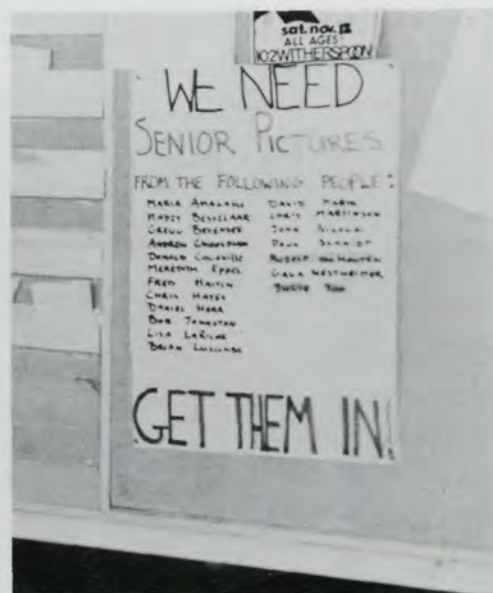 sat. nov. 12
ALL AGES
102 WITHERSPOON
WE NEED
SENIOR PICTURES
FROM THE FOLLOWING PEOPLE:
MARIA
BESSELAAR
GREGG
ANDREW
DONALD COLVILLE
MEREDITH EPPEL
FRED HAITCH
CHRIS HAYES
DANIEL HERR
BOB JOHNSTON
LISA LARUHE
BRIAN LUSCOMBE
DAVID MARIN
CHRIS MARTINSON
JOHN
PAUL SCHMIDT
RUDOLF VAN HOUTEN
GALA WESTHEIMER
GET THEM IN!